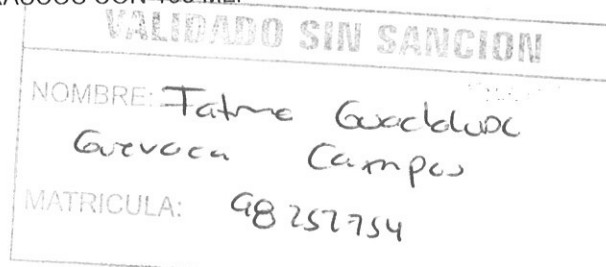 CON 100 ML.
VALIDADO SIN SANCION
NOMBRE: Fatme Guadalupe
Guevara Campos
MATRICULA: 98257754